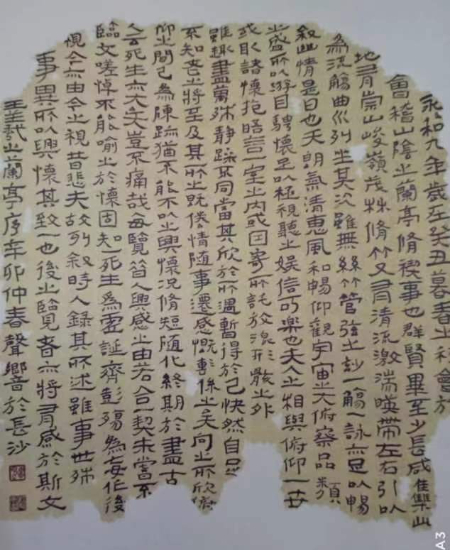 永和九年歲在癸丑暮春之初會於
會稽山陰之蘭亭脩禊事也群賢畢至少長咸集此
地有崇山峻嶺茂林脩竹又有清流激湍暎帶左右引以
為流觴曲水列坐其次雖無絲竹管弦之妙一觴一詠亦足以暢
敘幽情是日也天朗氣清惠風和暢仰觀宇宙之大俯察品類
之盛所以游目騁懷足以極視聽之娛信可樂也夫人之相與俯仰一世
或取諸懷抱晤言一室之內或因寄所託放浪形骸之外
雖趣萬殊靜躁不同當其欣於所遇暫得於己快然自足
不知老之將至及其所之既倦情隨事遷感慨係之矣向之所欣
仰之間已為陳跡猶不能不以之興懷況脩短隨化終期於盡古
人云死生亦大矣豈不痛哉每覽昔人興感之由若合一契未嘗不
臨文嗟悼不能喻之於懷固知死生為虛誕齊彭殤為妄作後
視今亦由今之視昔悲夫故列敘時人錄其所述雖事世殊
事異所以興懷其致一也後之覽者亦將有感於斯文
王羲之蘭亭序辛卯仲春聲響於長沙
A3